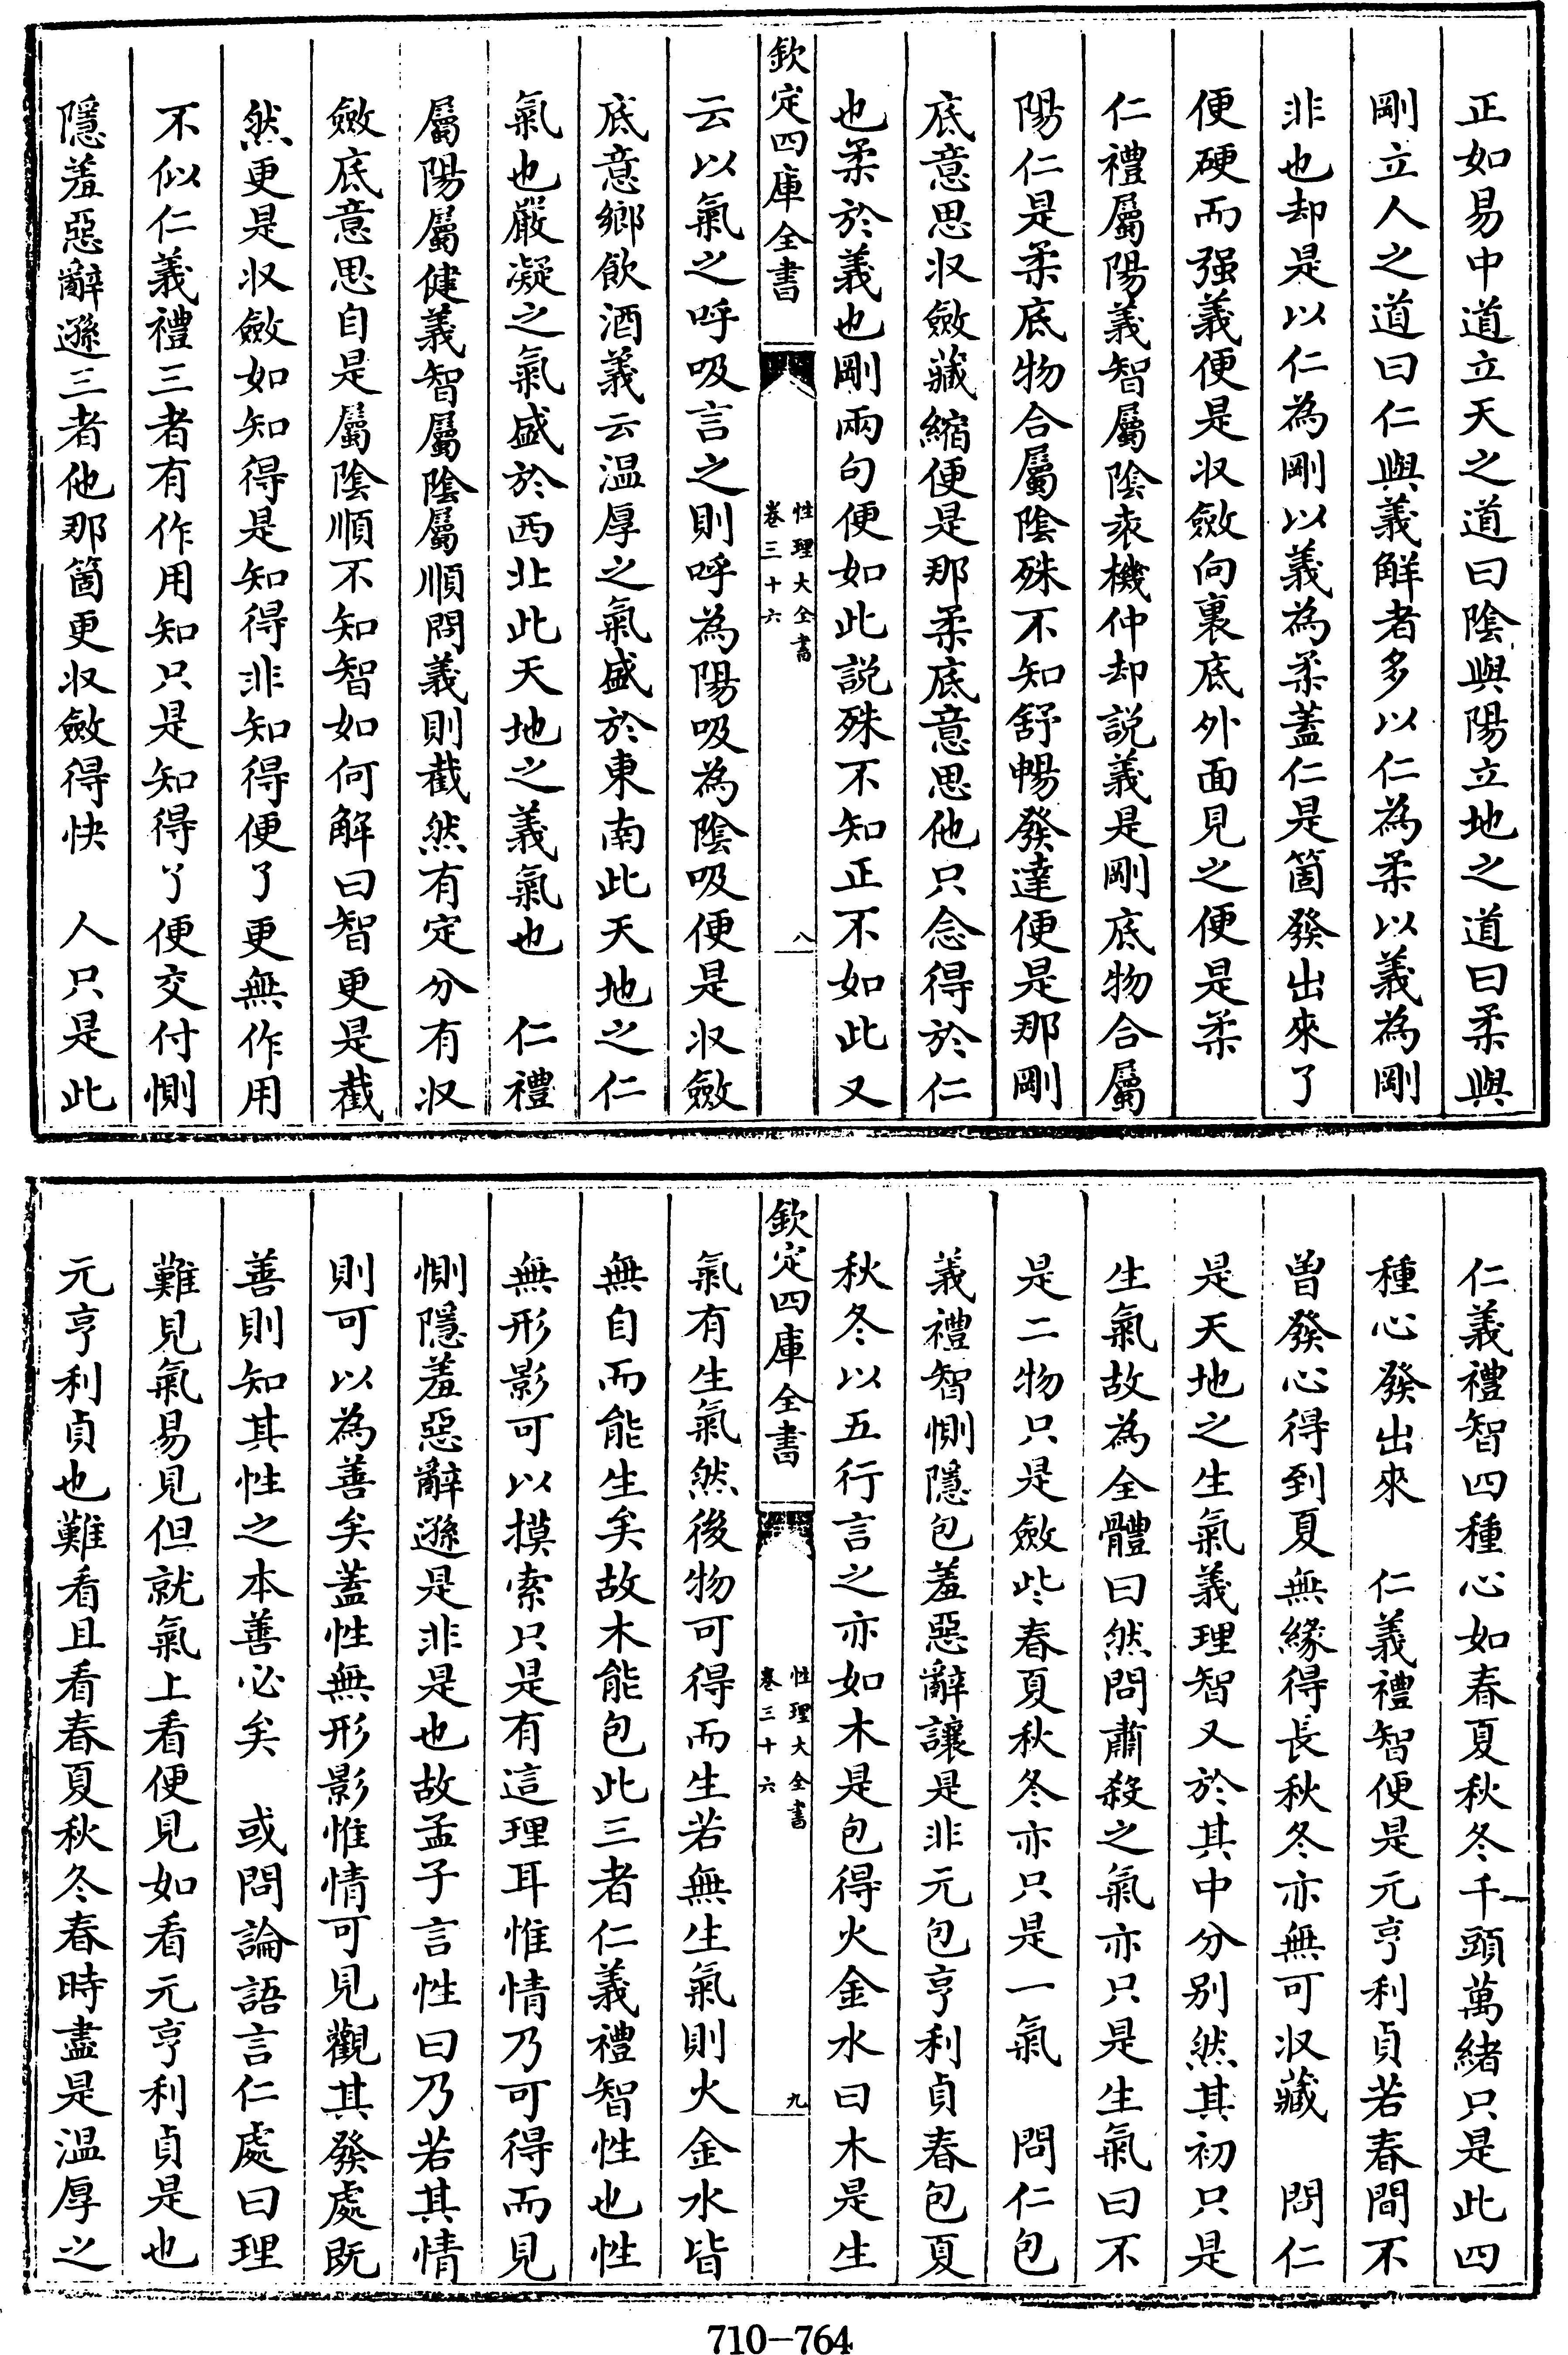 正如易中道立天之道曰陰與陽立地之道曰柔與
剛立人之道曰仁與義解者多以仁為柔以義為剛
非也却是以仁為剛以義為柔蓋仁是箇發出來了
便硬而强義便是収斂向裏底外面見之便是柔
仁禮屬陽義智屬陰袁機仲却説義是剛底物合屬
陽仁是柔底物合屬陰殊不知舒暢發達便是那剛
底意思収斂藏縮便是那柔底意思他只念得於仁
也柔於義也剛兩句便如此説殊不知正不如此又
欽定四庫全書
性理大全書
卷三十六
八
云以氣之呼吸言之則呼為陽吸為陰吸便是収斂
底意鄉飲酒義云温厚之氣盛於東南此天地之仁
氣也嚴凝之氣盛於西北此天地之義氣也 仁禮
屬陽屬健義智屬陰屬順問義則截然有定分有収
斂底意思自是屬陰順不知智如何解曰智更是截
然更是収斂如知得是知得非知得便了更無作用
不似仁義禮三者有作用知只是知得了便交付惻
隱羞惡辭遜三者他那箇更収斂得快 人只是此
仁義禮智四種心如春夏秋冬千頭萬緒只是此四
種心發出來 仁義禮智便是元亨利貞若春間不
曽發心得到夏無緣得長秋冬亦無可収藏 問仁
是天地之生氣義理智又於其中分别然其初只是
生氣故為全體曰然問肅殺之氣亦只是生氣曰不
是二物只是斂些春夏秋冬亦只是一氣 問仁包
義禮智惻隱包羞惡辭讓是非元包亨利貞春包夏
秋冬以五行言之亦如木是包得火金水曰木是生
欽定四庫全書
性理大全書
卷三十六
九
氣有生氣然後物可得而生若無生氣則火金水皆
無自而能生矣故木能包此三者仁義禮智性也性
無形影可以摸索只是有這理耳惟情乃可得而見
惻隱羞惡辭遜是非是也故孟子言性曰乃若其情
則可以為善矣蓋性無形影惟情可見觀其發處既
善則知其性之本善必矣 或問論語言仁處曰理
難見氣易見但就氣上看便見如看元亨利貞是也
元亨利貞也難看且看春夏秋冬春時盡是温厚之
710-764